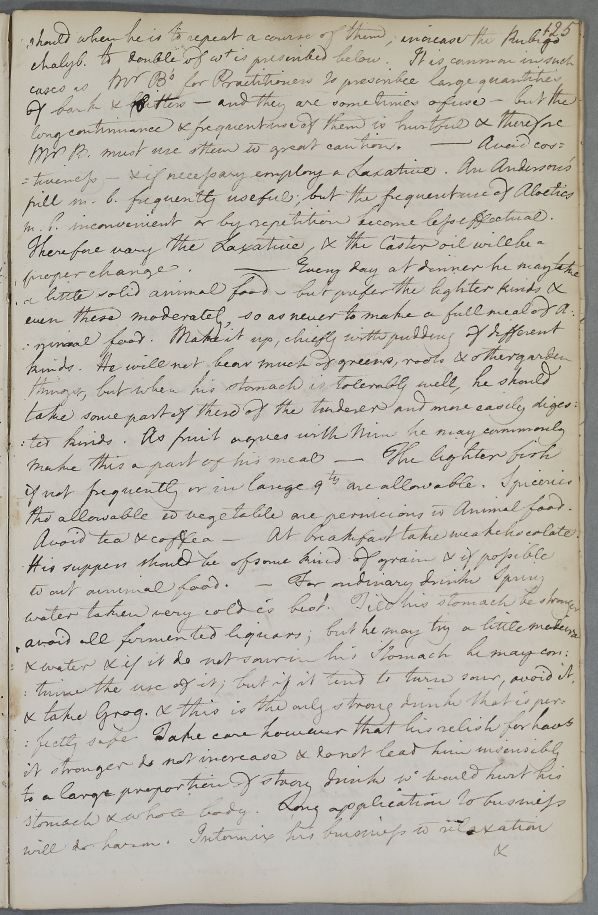 125
should when he is to repeat a course of them, increase the Rubigo
chalyb. to double of wt is prescribed below. It is common in such
cases as Mr Bs for Practitioners to prescribe large quantities
of bark & bitters — and they are sometimes of use — but the
long continuance & frequent use of them is hurtful & therefore
Mr B. must use them wt great caution. — Avoid cos-
-tiveness — & if necessary employ a Laxative. An Anderson's
pill m. b. frequently useful, but the frequent use of Aloetics
m. b. inconvenient or by repetition become less effectual.
Therefore vary the Laxative, & the Castor oil will be a
proper change. — Every day at dinner he may take
a little solid animal food — but prefer the lighter kinds &
even these moderately, so as never to make a full meal of A-
:nimal food. Make it up, chiefly with pudding of different
kinds. He will not bear much of greens, roots & other garden
things, but when his stomach is tolerably well, he should
take some part of these of the tenderer and more easily diges-
:ted kinds. As fruit agrees with him he may commonly
make this a part of his meal — The lighter fish
if not frequently or in large qty are allowable. Spiceries
tho allowable wt vegetable are pernicious wt Animal food.
Avoid tea & coffea — At breakfast take weak chocolate.
His suppers should be of some kind of grain & if possible
wt out animal food. — For ordinary drink Spring
water taken very cold is best. Till his stomach be stronger
avoid all fermented liquors; but he may try a little madeira
& water & if it do not sour in his Stomach he may con:
:tinue the use of it; but if it tend to turn sour, avoid it.
& take Grog. & this is the only strong drink that is per-
:fectly safe. Take care however that his relish for havg
it stronger do not increase & do not lead him insensibly
to a large proportion of strong drink wc would hurt his
stomach & whole body. Long application to business
will do harm. Intermix his business wt relaxation
&